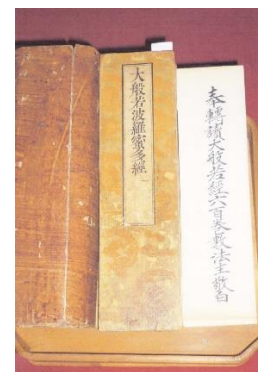 大般若波羅蜜多經一
奉轉讀大般若經六百卷數法主敬白